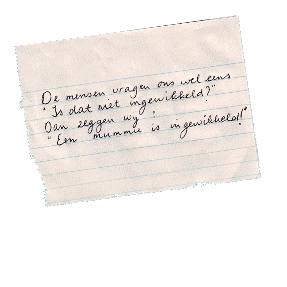 De mensen vragen ons wel eens
"Is dat niet ingewikkeld?"
Dan zeggen wij :
"Een mummie is ingewikkeld!"